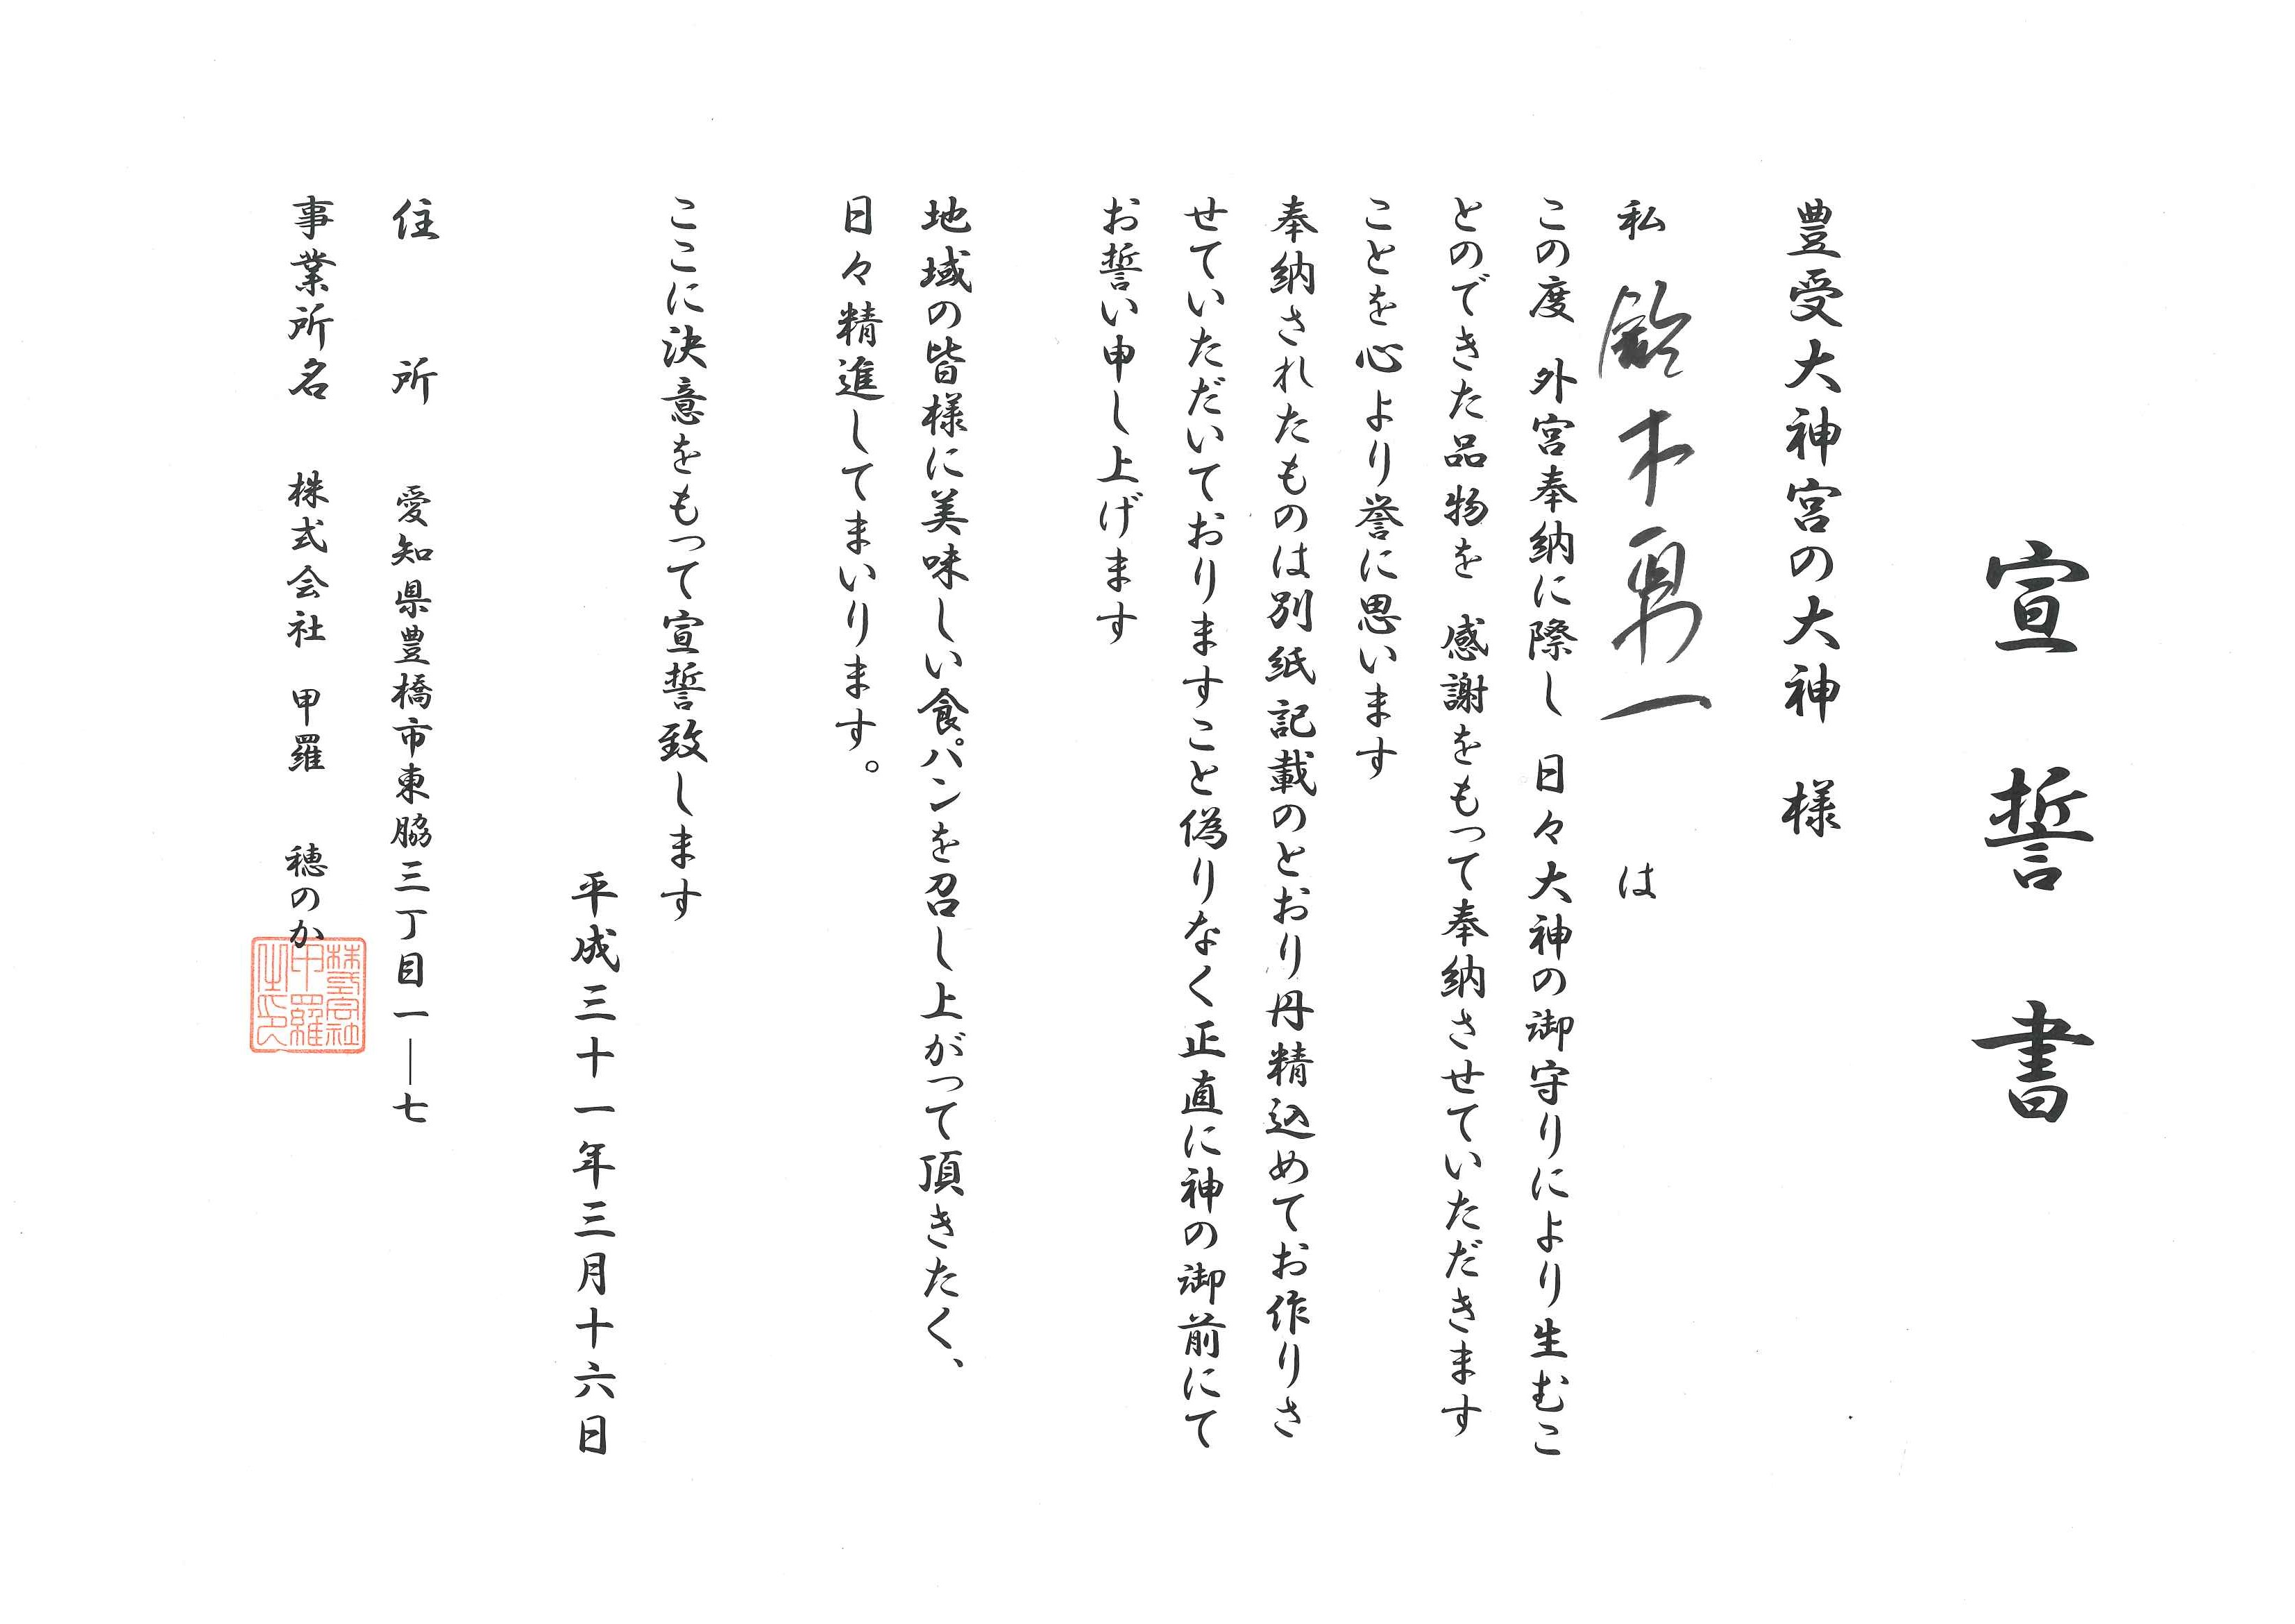 宣誓書
豊受大神宮の大神　様
私　鈴木勇一　は
この度　外宮奉納に際し　日々大神の御守りにより生むこ
とのできた品物を　感謝をもって奉納させていただきます
ことを心より誉に思います
奉納されたものは別紙記載のとおり丹精込めてお作りさ
せていただいておりますこと偽りなく正直に神の御前にて
お誓い申し上げます
地域の皆様に美味しい食パンを召し上がって頂きたく、
日々精進してまいります。
ここに決意をもって宣誓致します
平成三十一年三月十六日
住　所　愛知県豊橋市東脇三丁目一―七
事業所名　株式会社　甲羅　穂のか
株式会社
甲羅
之印